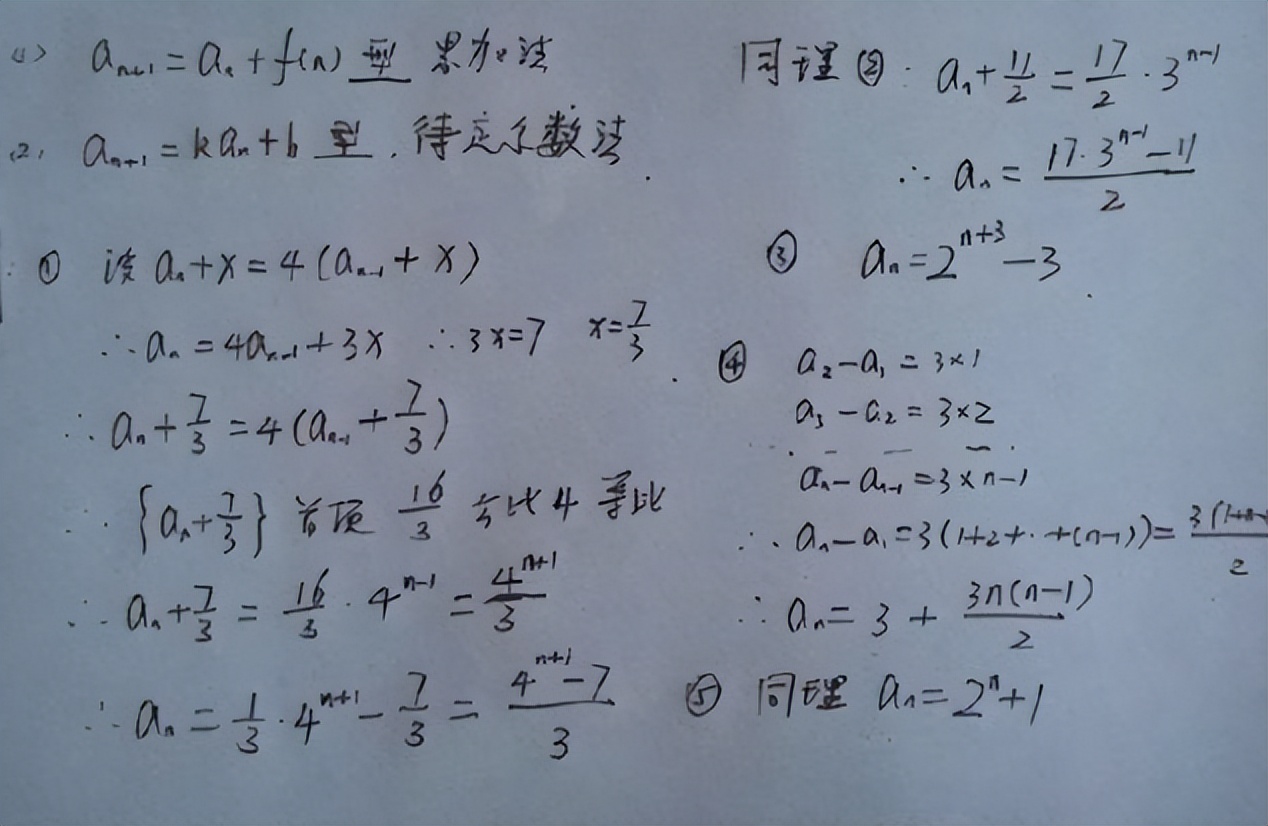 (1) aₙ₊₁ = aₙ + f(n) 型 累加法
(2) aₙ₊₁ = kaₙ + b 型. 待定系数法.
① 设 aₙ + x = 4(aₙ₋₁ + x)
∴ aₙ = 4aₙ₋₁ + 3x ∴ 3x = 7 x = 7/3
∴ aₙ + 7/3 = 4(aₙ₋₁ + 7/3)
∴ {aₙ + 7/3} 首项 16/3 公比 4 等比
∴ aₙ + 7/3 = 16/3 · 4ⁿ⁻¹ = 4ⁿ⁺¹/3
∴ aₙ = 1/3 · 4ⁿ⁺¹ - 7/3 = (4ⁿ⁺¹ - 7)/3
同理 ②: aₙ + 11/2 = 17/2 · 3ⁿ⁻¹
∴ aₙ = (17·3ⁿ⁻¹ - 11)/2
③ aₙ = 2ⁿ⁺³ - 3.
④ a₂ - a₁ = 3×1
a₃ - a₂ = 3×2
aₙ - aₙ₋₁ = 3×n-1
∴ aₙ - a₁ = 3(1+2+··+(n-1)) = 3(1+n-/2
∴ aₙ = 3 + 3n(n-1)/2
⑤ 同理 aₙ = 2ⁿ + 1